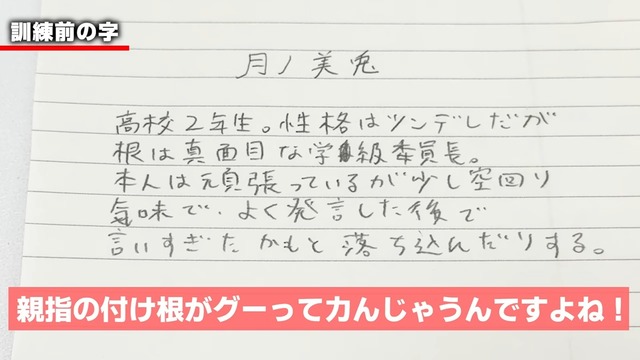 訓練前の字
月ノ美兎
高校2年生。性格はツンデレだが
根は真面目な学級委員長。
本人は頑張っているが少し空回り
気味で、よく発言した後で
言いすぎたかもと落ち込んだりする。
親指の付け根がグーって力んじゃうんですよね！